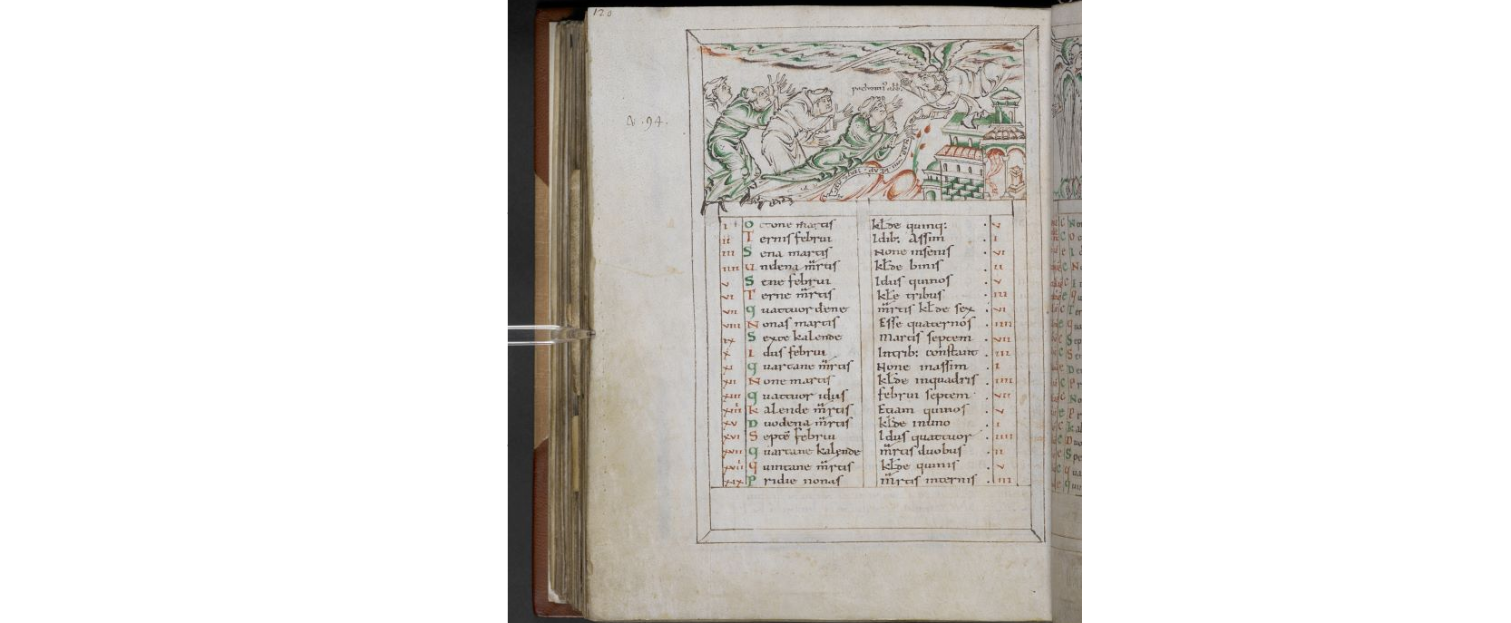 120
pachomius abb
N . 94.
i O ctone martis kłde quinq: . v
ii T ernis februi Idib: Assim . i
iii S ena martis None insenis . vi
iiii U ndena m̄rtis kłde binis . ii
v S ene februi Idus quinos . v
vi T erne m̄rtis kłde tribus . iii
vii q uattuor dene m̄rtis kłde sex . vi
viii N onas martis Esse quaternos . iiii
ix S exte kalende Martis septem . vii
x I dus februi Intrib: constant . iii
xi q uartane m̄rtis None inassim . i
xii N one martis kłde inquadris . iiii
xiii q uattuor idus februi septem . vii
xiiii k alende m̄rtis Etiam quinos . v
xv D uodena m̄rtis kłde inuno . i
xvi S eptē februi Idus quattuor . iiii
xvii q uartane kalende m̄rtis duobus . ii
xviii q uintane m̄rtis kłde quinis . v
xix P ridie nonas m̄rtis internis . iii